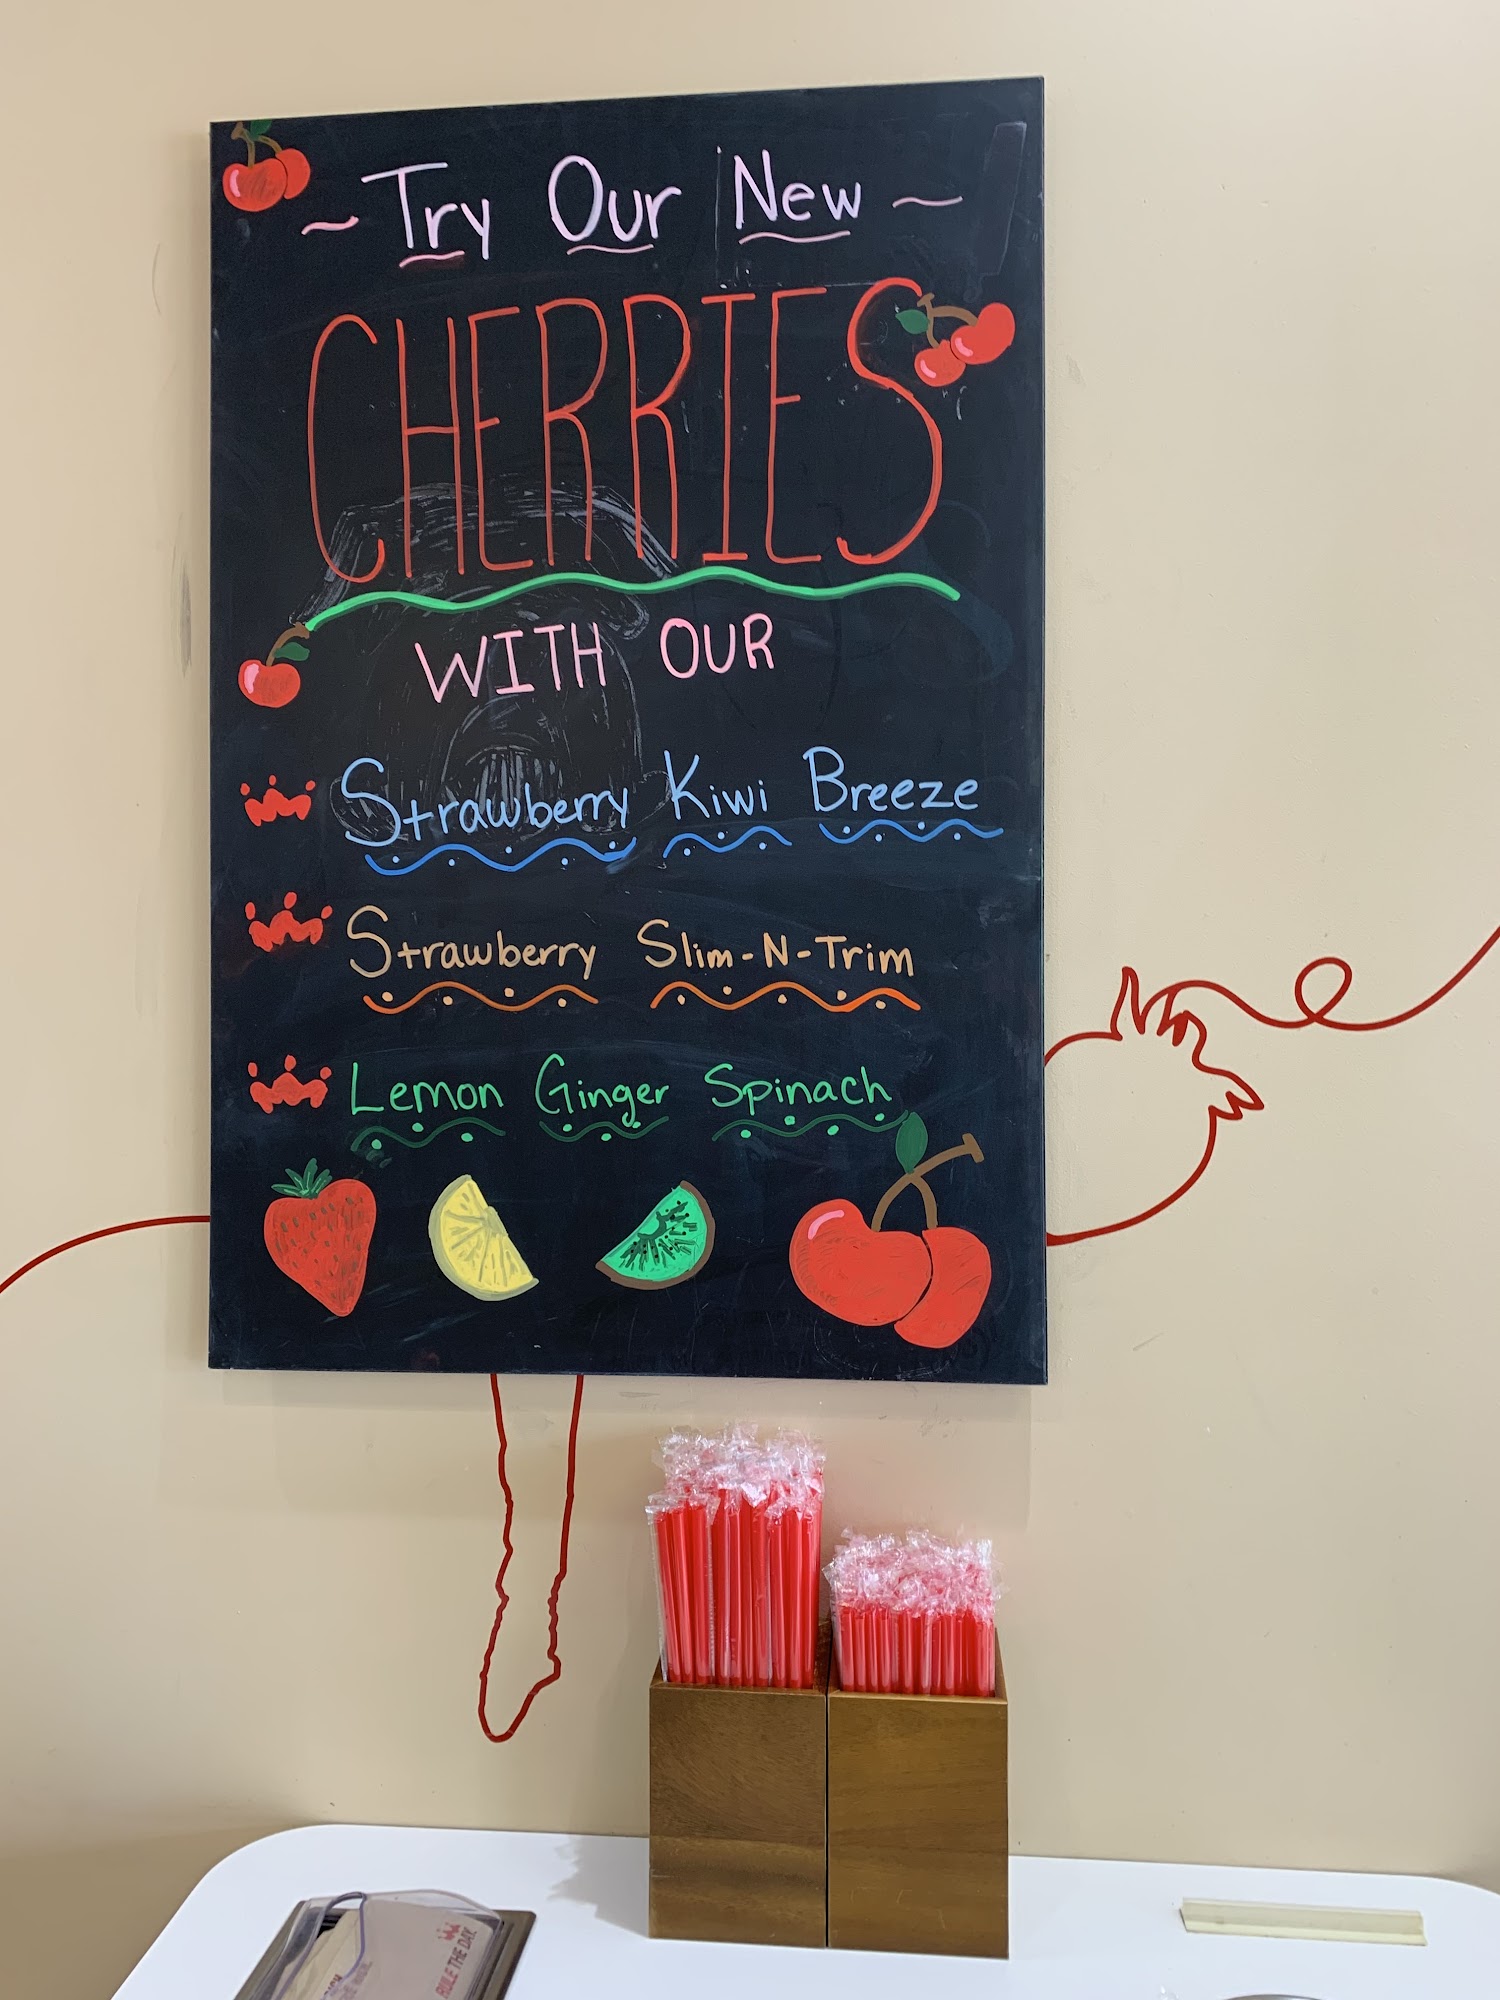 ~ Try Our New ~
CHERRIES
WITH OUR
Strawberry Kiwi Breeze
Strawberry Slim-N-Trim
Lemon Ginger Spinach
RULE THE DAY.